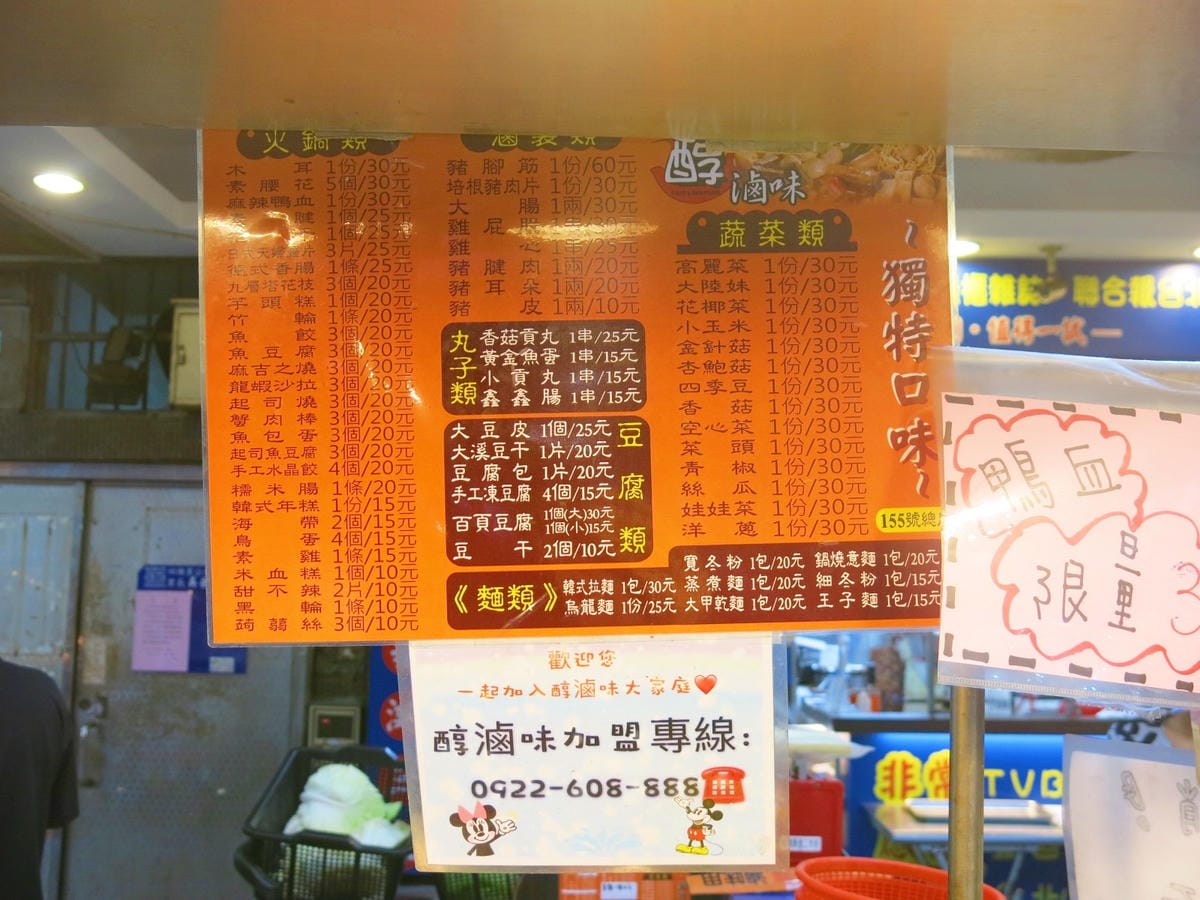 火鍋類
木耳 1份/30元
素腰花 5個/30元
麻辣鴨血 1份/30元
1個/25元
1個/25元
3片/25元
德式香腸 1條/25元
九層塔花枝 3個/20元
芋頭糕 1個/20元
竹輪 1條/20元
魚餃 3個/20元
魚豆腐 3個/20元
麻吉之燒 3個/20元
龍蝦沙拉 3個/20元
起司燒 3個/20元
蟹肉棒 3個/20元
魚包蛋 3個/20元
起司魚豆腐 3個/20元
手工水晶餃 4個/20元
糯米腸 1條/20元
韓式年糕 1份/15元
海帶 2個/15元
鳥蛋 4個/15元
素雞 1條/15元
米血糕 1個/10元
甜不辣 2片/10元
黑輪 1條/10元
蒟蒻絲 3個/10元
滷製類
豬腳筋 1份/60元
培根豬肉片 1份/30元
大腸 1兩/30元
雞屁股 1串/30元
雞心 1串/25元
豬腱肉 1兩/20元
豬耳朵 1兩/20元
豬皮 1兩/10元
丸子類
香菇貢丸 1串/25元
黃金魚蛋 1串/15元
小貢丸 1串/15元
鑫鑫腸 1串/15元
豆腐類
大豆皮 1個/25元
大溪豆干 1片/20元
豆腐包 1片/20元
手工凍豆腐 4個/15元
百頁豆腐 1個(大)30元
1個(小)15元
豆干 2個/10元
醇滷味
蔬菜類
高麗菜 1份/30元
大陸妹 1份/30元
花椰菜 1份/30元
小玉米 1份/30元
金針菇 1份/30元
杏鮑菇 1份/30元
四季豆 1份/30元
香菇 1份/30元
空心菜 1份/30元
菜頭 1份/30元
青椒 1份/30元
絲瓜 1份/30元
娃娃菜 1份/30元
洋蔥 1份/30元
~獨特口味~
155號總
《麵類》
寬冬粉 1包/20元 鍋燒意麵 1包/20元
韓式拉麵 1包/30元 蒸煮麵 1包/20元 細冬粉 1包/15元
烏龍麵 1份/25元 大甲乾麵 1包/20元 王子麵 1包/15元
歡迎您
一起加入醇滷味大家庭❤
醇滷味加盟專線:
0922-608-888
鴨血
限量
雜誌 聯合報
值得一試
非常
TVB